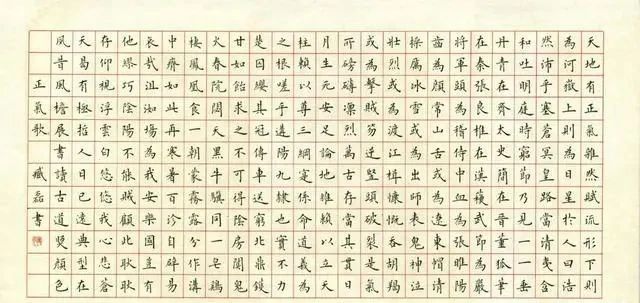 天地有正氣雜然賦流形下則
為河嶽上則為日星於人曰浩
然沛乎塞蒼冥皇路當清夷含
和吐明庭時窮節乃見一一垂
丹青在齊太史簡在晉董狐筆
在秦張良椎在漢蘇武節為嚴
將軍頭為嵇侍中血為張睢陽
齒為顏常山舌或為遼東帽清
操厲冰雪或為出師表鬼神泣
壯烈或為渡江楫慷慨吞胡羯
或為擊賊笏逆豎頭破裂是氣
所磅礴凜烈萬古存當其貫日
月生死安足論地維賴以立天
柱賴以尊三綱實係命道義為
之根嗟予遘陽九隸也實不力
楚囚纓其冠傳車送窮北鼎鑊
甘如飴求之不可得陰房闃鬼
火春院閟天黑牛驥同一皂雞
棲鳳凰食一朝蒙霧露分作溝
中瘠如此再寒暑百沴自辟易
哀哉沮洳場為我安樂國豈有
他繆巧陰陽不能賊顧此耿耿
存仰視浮雲白悠悠我心悲蒼
天曷有極哲人日已遠典型在
夙昔風檐展書讀古道照顏色
正氣歌 臧磊書